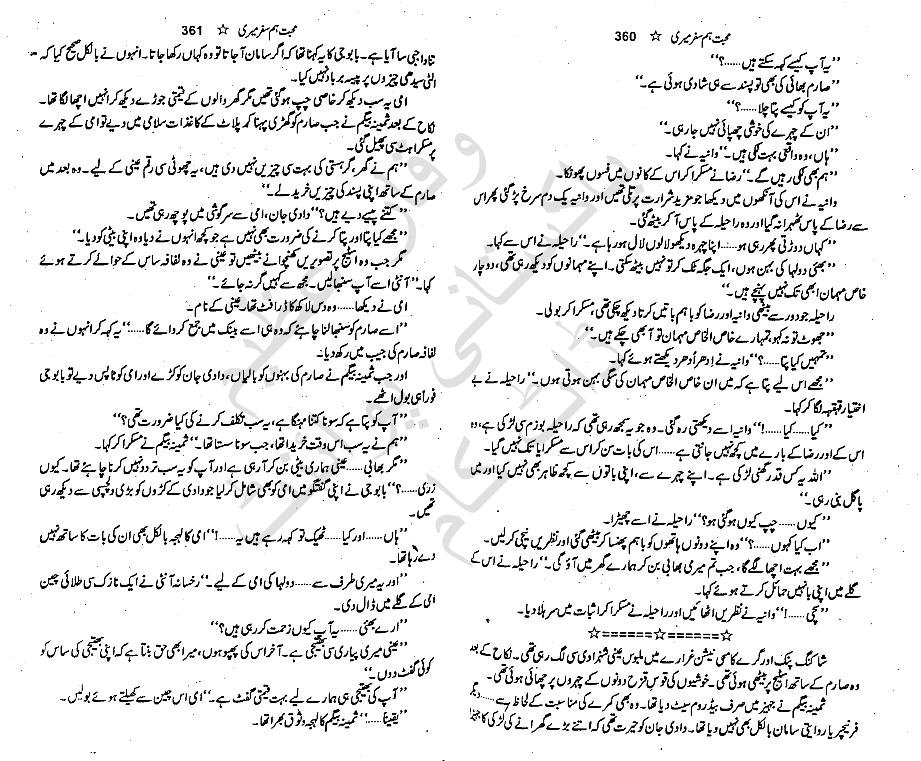 محبت ہم سفر میری ☆ 360
’’یہ آپ کیسے کہہ سکتے ہیں……؟‘‘
’’صارم بھائی کی بھی تو پسند سے ہی شادی ہوئی ہے۔‘‘
’’یہ آپ کو کیسے پتا چلا……؟‘‘
’’ان کے چہرے کی خوشی چھپائی نہیں جا رہی۔‘‘
’’ہاں، وہ واقعی بہت لکی ہیں۔‘‘ وانیہ نے کہا۔
’’ہم بھی لکی رہیں گے۔‘‘ رضا نے مسکرا کر اس کے کانوں میں فسوں پھونکا۔
وانیہ نے اس کی آنکھوں میں دیکھا جو مزید شرارت پر تلی تھیں اور وانیہ یک دم سرخ پڑ گئی پھر اس
سے رضا کے پاس ٹھہرا نہ گیا اور وہ راحیلہ کے پاس آ کر بیٹھ گئی۔
’’کہاں دوڑتی پھر رہی ہو…… اپنا چہرہ دیکھو لالوں لال ہو رہا ہے۔‘‘ راحیلہ نے اس سے کہا۔
’’بھئی دولہا کی بہن ہوں، ایک جگہ ٹک کر تو نہیں بیٹھ سکتی۔ اپنے مہمانوں کو دیکھ رہی تھی، دو چار
خاص مہمان ابھی تک نہیں پہنچے ہیں۔‘‘
راحیلہ جو دور سے بیٹھی وانیہ اور رضا کو باہم باتیں کرتا دیکھ چکی تھی، مسکرا کر بولی۔
’’جھوٹ تو نہ کہو، تمہارے خاص الخاص مہمان تو آ بھی چکے ہیں۔‘‘
’’تمہیں کیا پتا……؟‘‘ وانیہ نے اِدھر اُدھر دیکھتے ہوئے کہا۔
’’مجھے اس لیے پتا ہے کہ میں ان خاص الخاص مہمان کی سگی بہن ہوتی ہوں۔‘‘ راحیلہ نے بے
اختیار قہقہہ لگا کر کہا۔
’’کیا…… کیا……!‘‘ وانیہ اسے دیکھتی رہ گئی۔ وہ جو یہ سمجھ رہی تھی کہ راحیلہ بوزم سی لڑکی ہے، وہ
اس کے اور رضا کے بارے میں کچھ نہیں جانتی ہے…… اس کی بات سن کر اس سے مسکرایا تک نہیں گیا۔
’’اللہ یہ کس قدر گھنی لڑکی ہے۔ اپنے چہرے سے، اپنی باتوں سے کچھ ظاہر بھی نہیں کیا اور میں
پاگل بنی رہی۔‘‘
’’کیوں…… چپ کیوں ہو گئی ہو؟‘‘ راحیلہ نے اسے چھیڑا۔
’’اب کیا کہوں……؟‘‘ وہ اپنے دونوں ہاتھوں کو باہم پھنسا کر بیٹھی گئی اور نظریں نیچی کر لیں۔
’’مجھے بہت اچھا لگے گا، جب تم میری بھابی بن کر ہمارے گھر میں آؤ گی۔‘‘ راحیلہ نے اس کے
گلے میں اپنی بانہیں حمائل کرتے ہوئے کہا۔
’’سچی……!‘‘ وانیہ نے نظریں اٹھائیں اور راحیلہ نے مسکرا کر اثبات میں سر ہلا دیا۔
☆======☆======☆
شاکنگ پنک اور گرے کامبی نیشن غرارے میں ملبوس عینی شہزادی سی لگ رہی تھی۔ نکاح کے بعد
وہ صارم کے ساتھ اسٹیج پر بیٹھی ہوئی تھی۔ خوشیوں کی قوس قزح دونوں کے چہروں پر چھائی ہوئی تھی۔
ثمینہ بیگم نے جہیز میں صرف بیڈ روم سیٹ دیا تھا۔ وہ بھی کمرے کی مناسبت کے لحاظ سے…… دیگر
فرنیچر یا روایتی سامان بالکل بھی نہیں دیا تھا۔ دادی جان کو حیرت تھی کہ اتنے بڑے گھرانے کی لڑکی کا جہیز
محبت ہم سفر میری ☆ 361
اتنا واجبی سا آیا ہے۔ بابو جی کا یہ کہنا تھا کہ اگر سامان آ جاتا تو وہ کہاں رکھا جاتا۔ انہوں نے بالکل صحیح کیا کہ
الٹی سیدھی چیزوں پر پیسہ برباد نہیں کیا۔
امی یہ سب دیکھ کر خاصی چپ ہو گئی تھیں مگر گھر والوں کے قیمتی جوڑے دیکھ کر انہیں اچھا لگا تھا۔
نکاح کے بعد ثمینہ بیگم نے جب صارم کو گھڑی پہنا کر پلاٹ کے کاغذات سلامی میں دیے تو امی کے چہرے
پر مسکراہٹ سی پھیل گئی۔
’’ہم نے گھر، گرہستی کی بہت سی چیزیں نہیں دی ہیں، یہ چھوٹی سی رقم عینی کے لیے۔ وہ بعد میں
صارم کے ساتھ اپنی پسند کی چیزیں خرید لے۔‘‘
’’کتنے پیسے دیے ہیں؟‘‘ دادی جان، امی سے سرگوشی میں پوچھ رہی تھیں۔
’’مجھے کیا پتا اور پتا کرنے کی ضرورت بھی نہیں ہے جو کچھ انہوں نے دیا وہ اپنی بیٹی کو دیا۔‘‘
مگر جب وہ اسٹیج پر تصویریں کھنچوانے بیٹھیں تو عینی نے وہ لفافہ ساس کے حوالے کرتے ہوئے
کہا۔ ’’آنٹی اسے آپ سنبھالیں۔ مجھ سے کہیں گر نہ جائے۔‘‘
امی نے دیکھا…… وہ دس لاکھ کا ڈرافٹ تھا۔ عینی کے نام۔
’’اسے صارم کو سنبھالنا چاہئے کہ وہ ہی اسے بینک میں جمع کروائے گا……‘‘ یہ کہہ کر انہوں نے وہ
لفافہ صارم کی جیب میں رکھ دیا۔
اور جب ثمینہ بیگم نے صارم کی بہنوں کو بالیاں، دادی جان کو کڑے اور امی کو ٹاپس دیے تو بابو جی
فوراً ہی بول اٹھے۔
’’آپ کو پتا ہے کہ سونا کتنا مہنگا ہے، یہ سب تکلف کرنے کی کیا ضرورت تھی؟‘‘
’’ہم نے یہ سب اس وقت خریدا تھا، جب سونا سستا تھا۔‘‘ ثمینہ بیگم نے مسکرا کر کہا۔
’’مگر بھابی…… عینی ہماری بیٹی بن کر آ رہی ہے اور آپ کو یہ سب تردد نہیں کرنا چاہئے تھا۔ کیوں
زری……؟‘‘ بابو جی نے اپنی گفتگو میں امی کو بھی شامل کر لیا جو دادی کے کڑوں کو بڑی دلچسپی سے دیکھ رہی
تھیں۔
’’ہاں…… اور کیا…… ٹھیک تو کہہ رہے ہیں یہ……!‘‘ امی کا لہجہ بالکل بھی ان کی بات کا ساتھ نہیں
دے رہا تھا۔
’’اور یہ میری طرف سے…… دولہا کی امی کے لیے۔‘‘ رخسانہ آنٹی نے ایک نازک سی طلائی چین
امی کے گلے میں ڈال دی۔
’’ارے بھئی…… یہ آپ کیوں زحمت کر رہی ہیں؟‘‘
’’عینی میری پیاری سی بھتیجی ہے۔ آخر اس کی پھپو ہوں، میرا بھی حق بنتا ہے کہ اپنی بھتیجی کی ساس کو
کوئی گفٹ دوں۔‘‘
’’آپ کی بھتیجی ہی ہمارے لیے بہت قیمتی گفٹ ہے۔‘‘ امی اس چین سے کھیلتے ہوئے بولیں۔
’’یقیناً……‘‘ ثمینہ بیگم کا لہجہ وثوق بھرا تھا۔